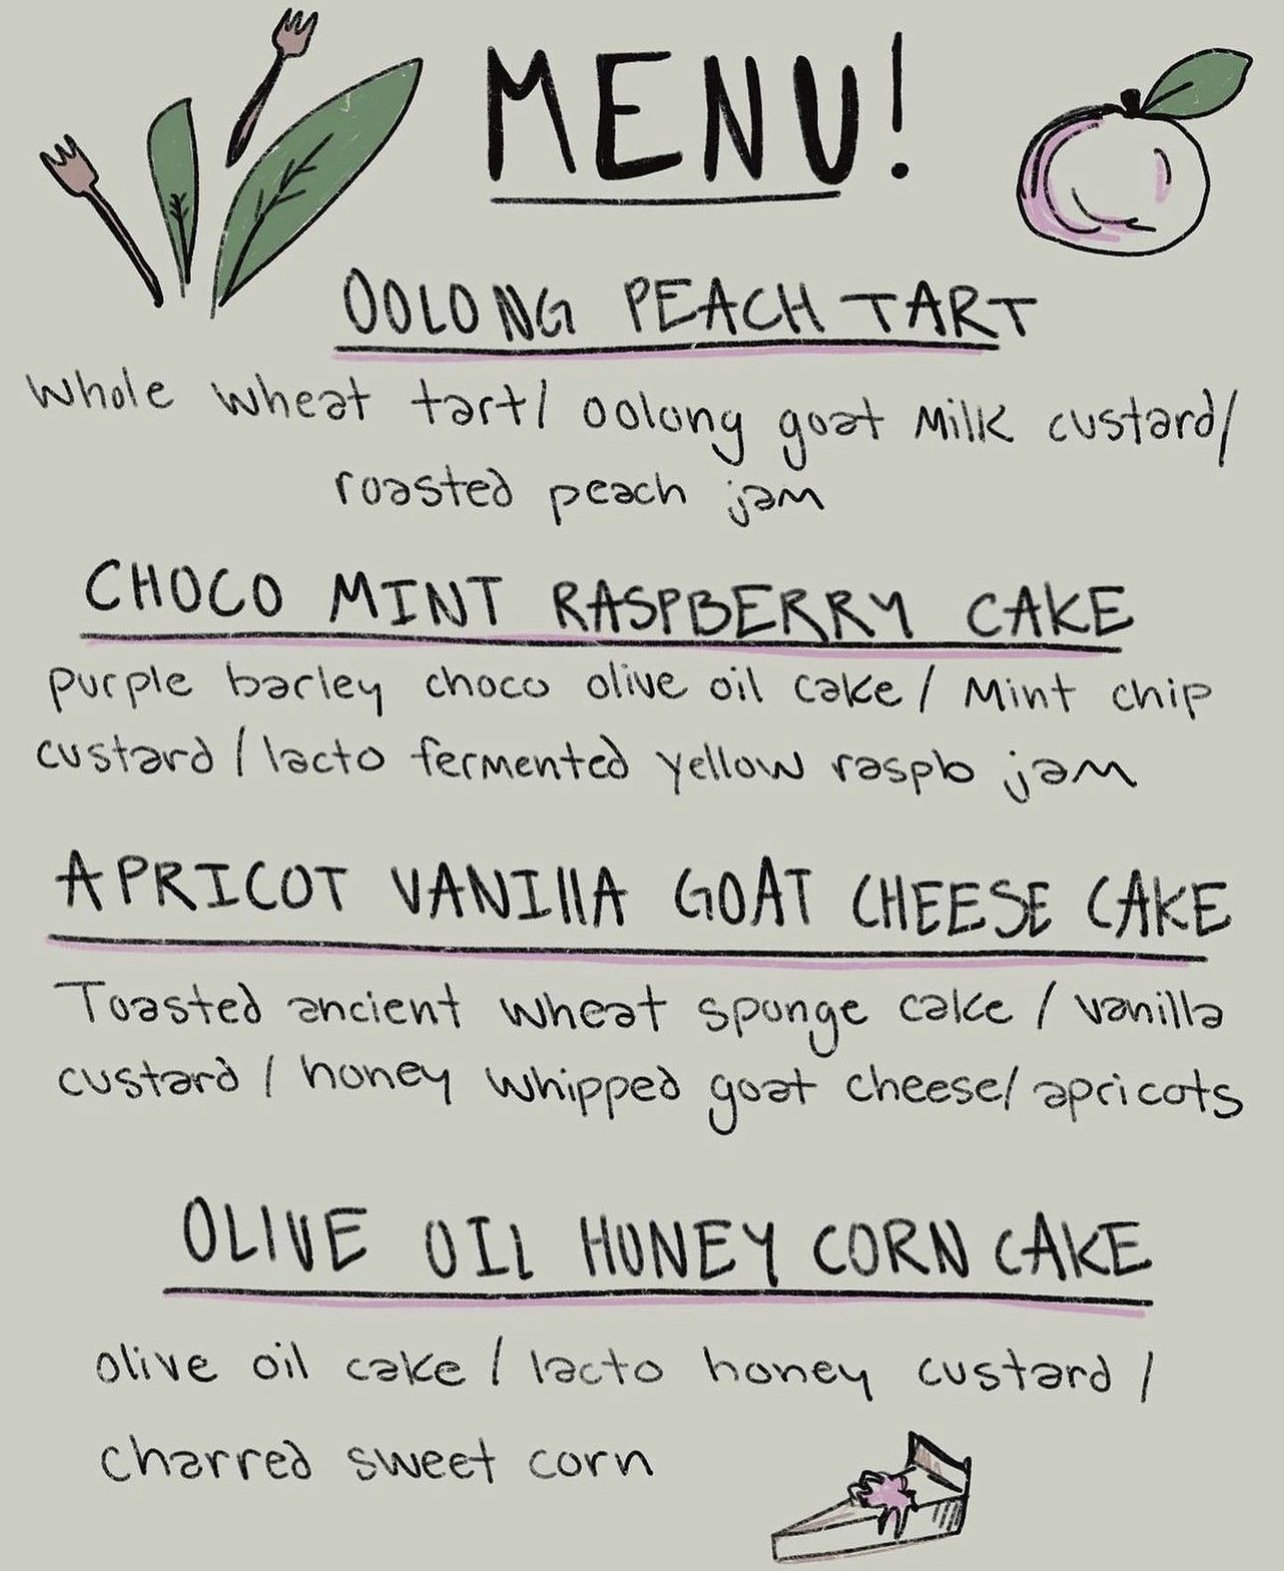 MENU!
OOLONG PEACH TART
whole wheat tart/ oolong goat milk custard/
roasted peach jam
CHOCO MINT RASPBERRY CAKE
purple barley choco olive oil cake / mint chip
custard / lacto fermented yellow raspb jam
APRICOT VANIllA GOAT CHEESE CAKE
Toasted ancient wheat sponge cake / vanilla
custard / honey whipped goat cheese/ apricots
OLIVE OIL HONEY CORN CAKE
olive oil cake / lacto honey custard /
charred sweet corn